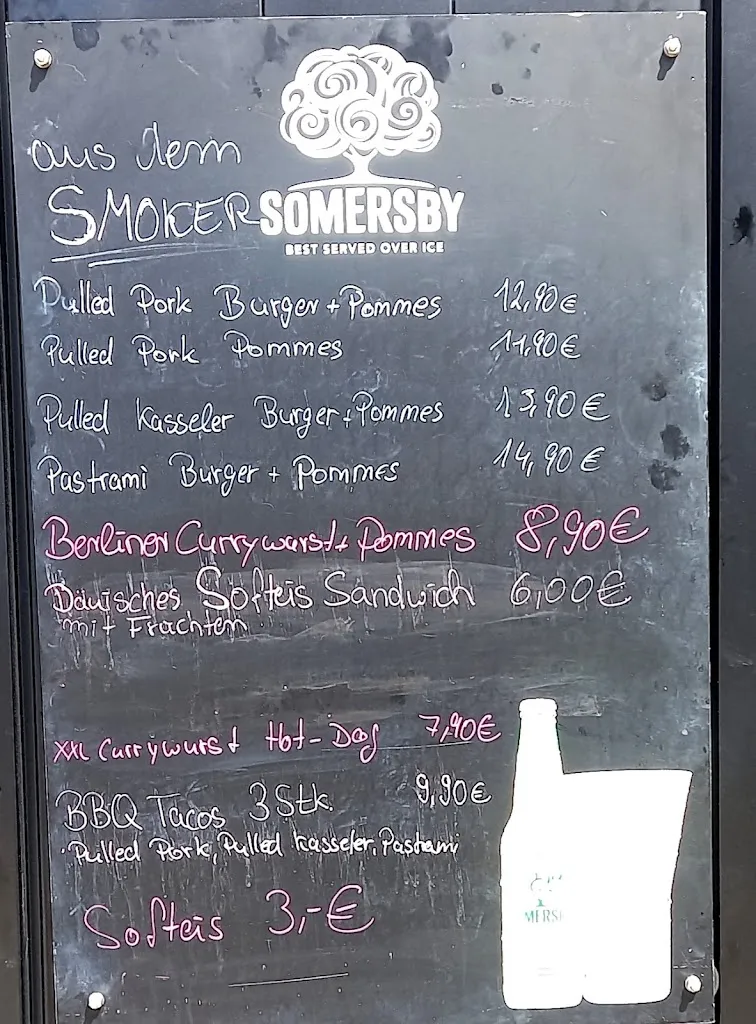 aus dem
SMOKER
SOMERSBY
BEST SERVED OVER ICE
Pulled Pork Burger + Pommes 12,90€
Pulled Pork Pommes 11,90€
Pulled Kasseler Burger + Pommes 13,90€
Pastrami Burger + Pommes 14,90€
Berliner Currywurst + Pommes 8,90€
Dänisches Softeis Sandwich 6,00€
mit Früchten
XXL Currywurst Hot-Dog 7,90€
BBQ Tacos 3 Stk. 9,90€
Pulled Pork, Pulled Kasseler, Pastrami
Softeis 3,-€
MERS